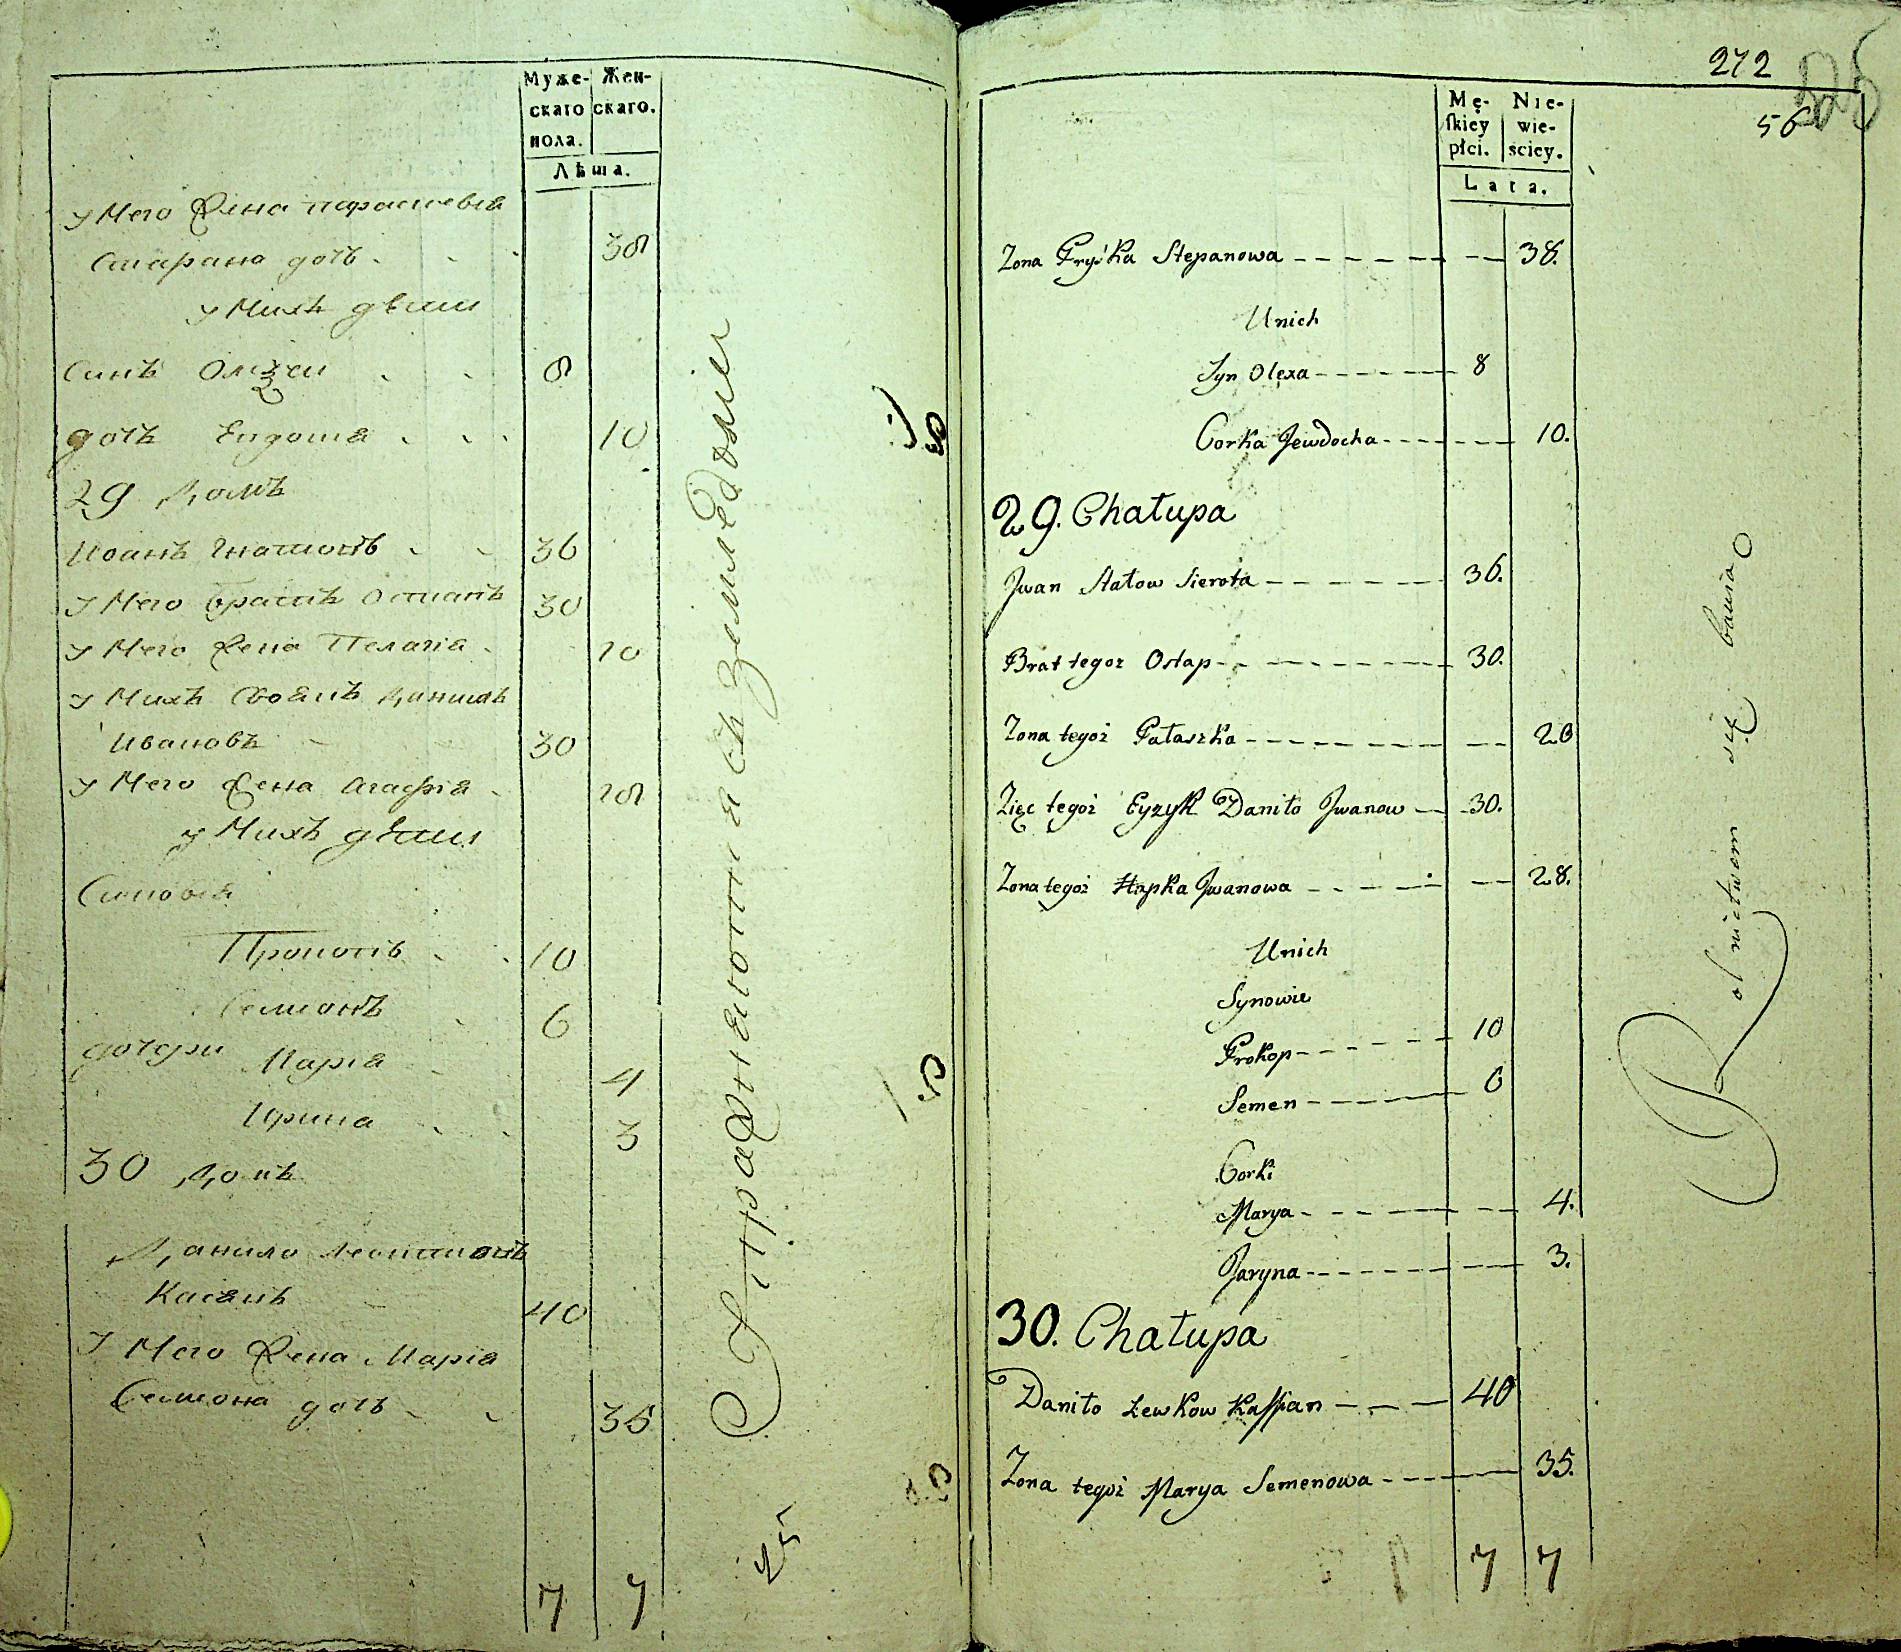 Муже-
скаго
пола.
Жен-
скаго.
Лѣта.
у Него Жена парасшевія
Степана дочь
38
у Нихъ дѣти
Синъ Олеѯеи
8
дочь Евдошя
10
29 Домъ
Иоанъ Гнатовъ
36
у Него братъ Остапъ
30
у Него Жена Пелагія
20
у Нихъ Данило
Ивановъ
30
у Него Жена Агафія
28
у Нихъ дѣти
Синовя
Прокопъ
10
Семионъ
6
дочери Марія
4
Ирина
3
30 Домъ
Данило
Касянъ
40
у Него Жена Марія
Семиона дочь
35
7 7
Упражнеются въ земледѣліи
272
56
Mę-
skiey
płci.
Nie-
wie-
ściey.
Lata.
Zona Fryśka Stepanowa 38.
Unich
Syn Olexa 8
Corka Jewdocha 10.
29. Chałupa
Jwan Sierota 36.
Brat tegoz Ostap 30.
Zona tegoż Pałaszka 20
Zięc tegoż Daniło Jwanow 30.
Zona tegoż Hapka Jwanowa 28.
Unich
Synowie
Prokop 10
Semen 6
Corki
Marya 4.
Jaryna 3.
30. Chałupa
Daniło Lewkow Kassian 40
Zona tegoż Marya Semenowa 35.
7 7
Rolnictwem się bawią